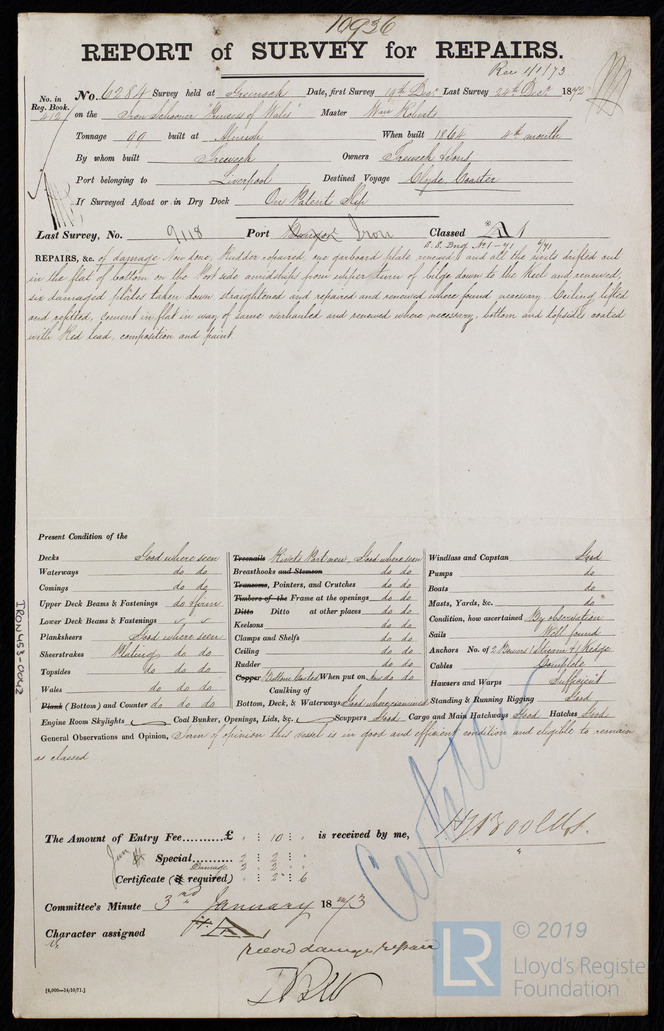 10936
REPORT of SURVEY for REPAIRS.
Rec 1/1/73
No. in Reg. Book.
412
No. 6284 Survey held at Greenock Date, first Survey 19th Decr Last Survey 24th Decr 1872
on the Iron Schooner "Princess of Wales" Master Wm Roberts
Tonnage 99 built at When built 1864 4th month
By whom built Owners & Sons
Port belonging to Liverpool Destined Voyage Clyde Coaster
If Surveyed Afloat or in Dry Dock On Patent Slip
Last Survey, No. 9118 Port Iron Classed A1
REPAIRS, &c. of damage Now done, Rudder repaired, one garboard plate renewed and all the rivets drifted out
in the flat of bottom on the Port side amidships from upper turn of bilge down to the Keel and renewed,
six damaged plates taken down straightened and repaired and renewed where found necessary. Ceiling lifted
and refitted, cement in flat in way of same overhauled and renewed where necessary, bottom and topsides coated
with Red lead, composition and paint
Present Condition of the
Decks Good where seen
Waterways do do
Comings do do
Upper Deck Beams & Fastenings do
Lower Deck Beams & Fastenings
Planksheers Good where seen
Sheerstrakes Plating do do
Topsides do do
Wales do do do
Plank (Bottom) and Counter do do do
Treenails Rivets Part new Good where seen
Breasthooks and Stemson do do
Transoms, Pointers, and Crutches do do
Timbers of the Frame at the openings do do
Ditto Ditto at other places do do
Keelsons do do
Clamps and Shelfs do do
Ceiling do do
Rudder do do
Copper Bottom Coated When put on Now do do
Caulking of
Bottom, Deck, & Waterways Good where examined
Windlass and Capstan Good
Pumps do
Boats do
Masts, Yards, &c. do
Condition, how ascertained By observation
Sails Well found
Anchors No. of 2 Bowers 1 Stream & 1 Kedge
Cables Complete
Hawsers and Warps Sufficient
Standing & Running Rigging Good
Engine Room Skylights Coal Bunker, Openings, Lids, &c. Scuppers Good Cargo and Main Hatchways Good Hatches Good
General Observations and Opinion, I am of opinion this vessel is in good and efficient condition and eligible to remain
as classed
The Amount of Entry Fee..........£ " : 10 : " is received by me,
Special.......... 2 : 2 : "
Damage 2 : 2 : "
Certificate (if required) " : 2 : 6
Committee's Minute 3rd January 1873
Character assigned A1
record damage repair
[4,000—14/10/71.]
IRON453-0042
LR
© 2019
Lloyd's Register
Foundation